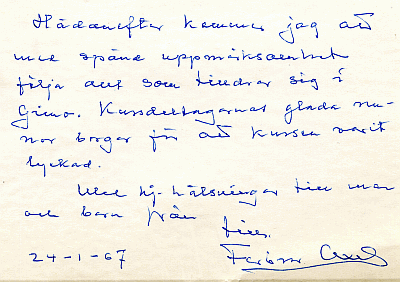 Hädanefter kommer jag att
med spänd uppmärksamhet
följa allt som tilldrar sig i
Gimo. Kursdeltagarnas glada mi-
nor borgar för att kursen varit
lyckad.
Med hj-hälsningar till man
och barn från
24-1-67